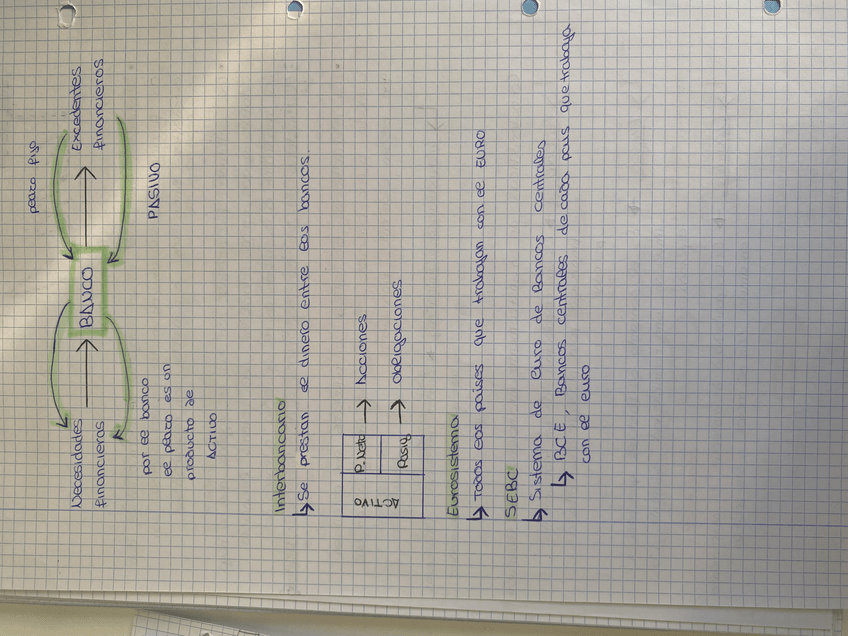 plazo fijo
Necesidades
financieras
BANCO
Excedentes
financieros
por el banco
el plazo es un
producto de
ACTIVO
PASIVO
Interbancario
↳ Se prestan el dinero entre los bancos.
ACTIVO
P.Neto → Acciones
Pasivo → obligaciones
Eurosistema
↳ Todos los países que trabajan con el EURO
SEBC
↳ Sistema de euro de Bancos centrales
↳ BCE, Bancos centrales de cada país que trabaja
con el euro